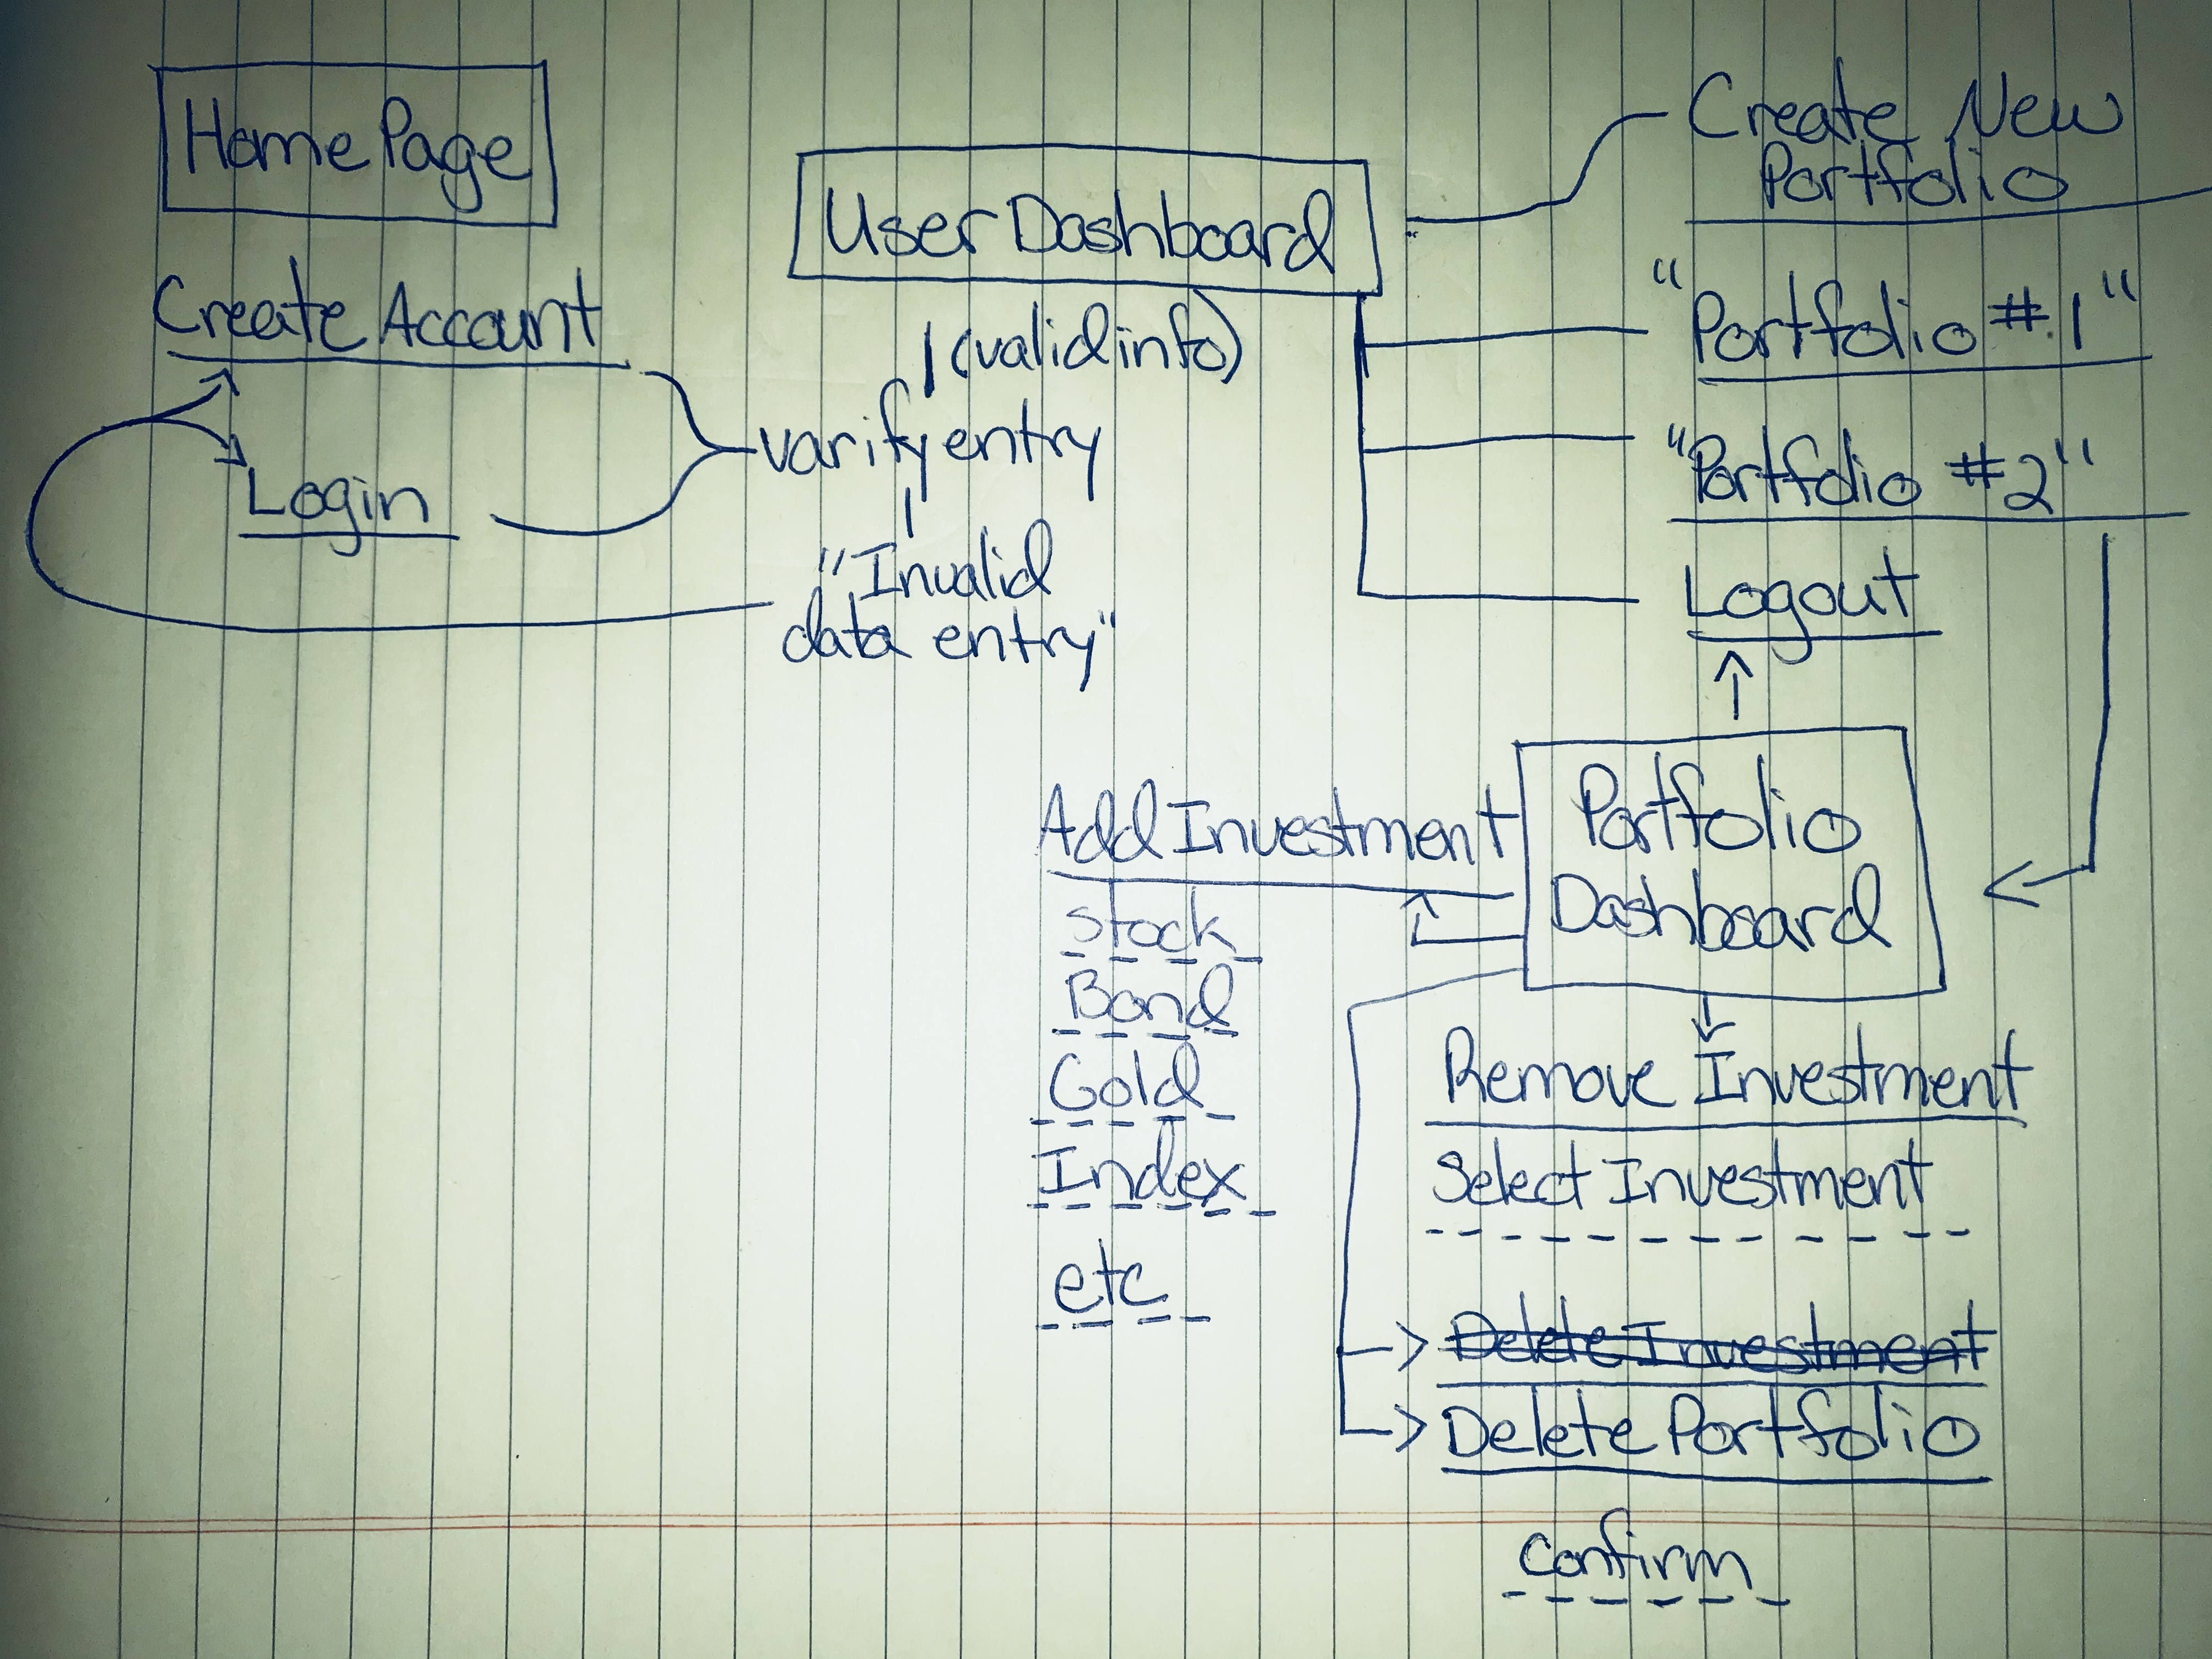 Home Page
Create Account
Login
User Dashboard
(valid info)
varify entry
"Invalid
data entry"
Create New
Portfolio
"Portfolio #1"
"Portfolio #2"
Logout
Portfolio
Dashboard
Add Investment
stock
Bond
Gold
Index
etc
Remove Investment
Select Investment
Delete Investment
Delete Portfolio
confirm